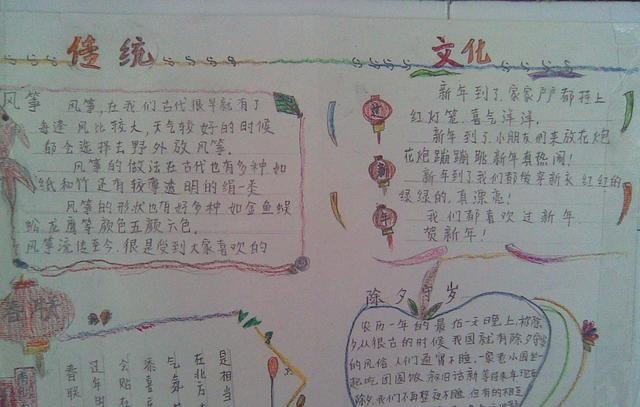 传统 文化
风筝
风筝,在我们古代很早就有了
每逢风比较大,天气较好的时候
都会选择去野外放风筝.
风筝的做法在古代也有多种如
纸和竹还有较薄透明的绢一类
风筝的形状也有好多种如金鱼蜈
蚣龙鹰等颜色五颜六色.
风筝流传至今.很是受到大家喜欢的
新年到了,家家户户都挂上
红灯笼.喜气洋洋.
新年到了小朋友们来放花炮
花炮蹦蹦跳新年真热闹!
新年到了我们都要穿新衣 红红的
绿绿的.真漂亮!
我们都喜欢过新年
贺新年!
过
新
年
春联
是相当
在北方
气氛
添喜
会贴在
过年时
春联
除夕守岁
农历一年的最后一天晚上,被称除
夕从很古的时候我国就有除夕守岁
的风俗 人们通宵不睡.一家老小围坐一
起吃团圆饭 叙旧话新 等待来年
除夕我们不再整夜不睡 但有的